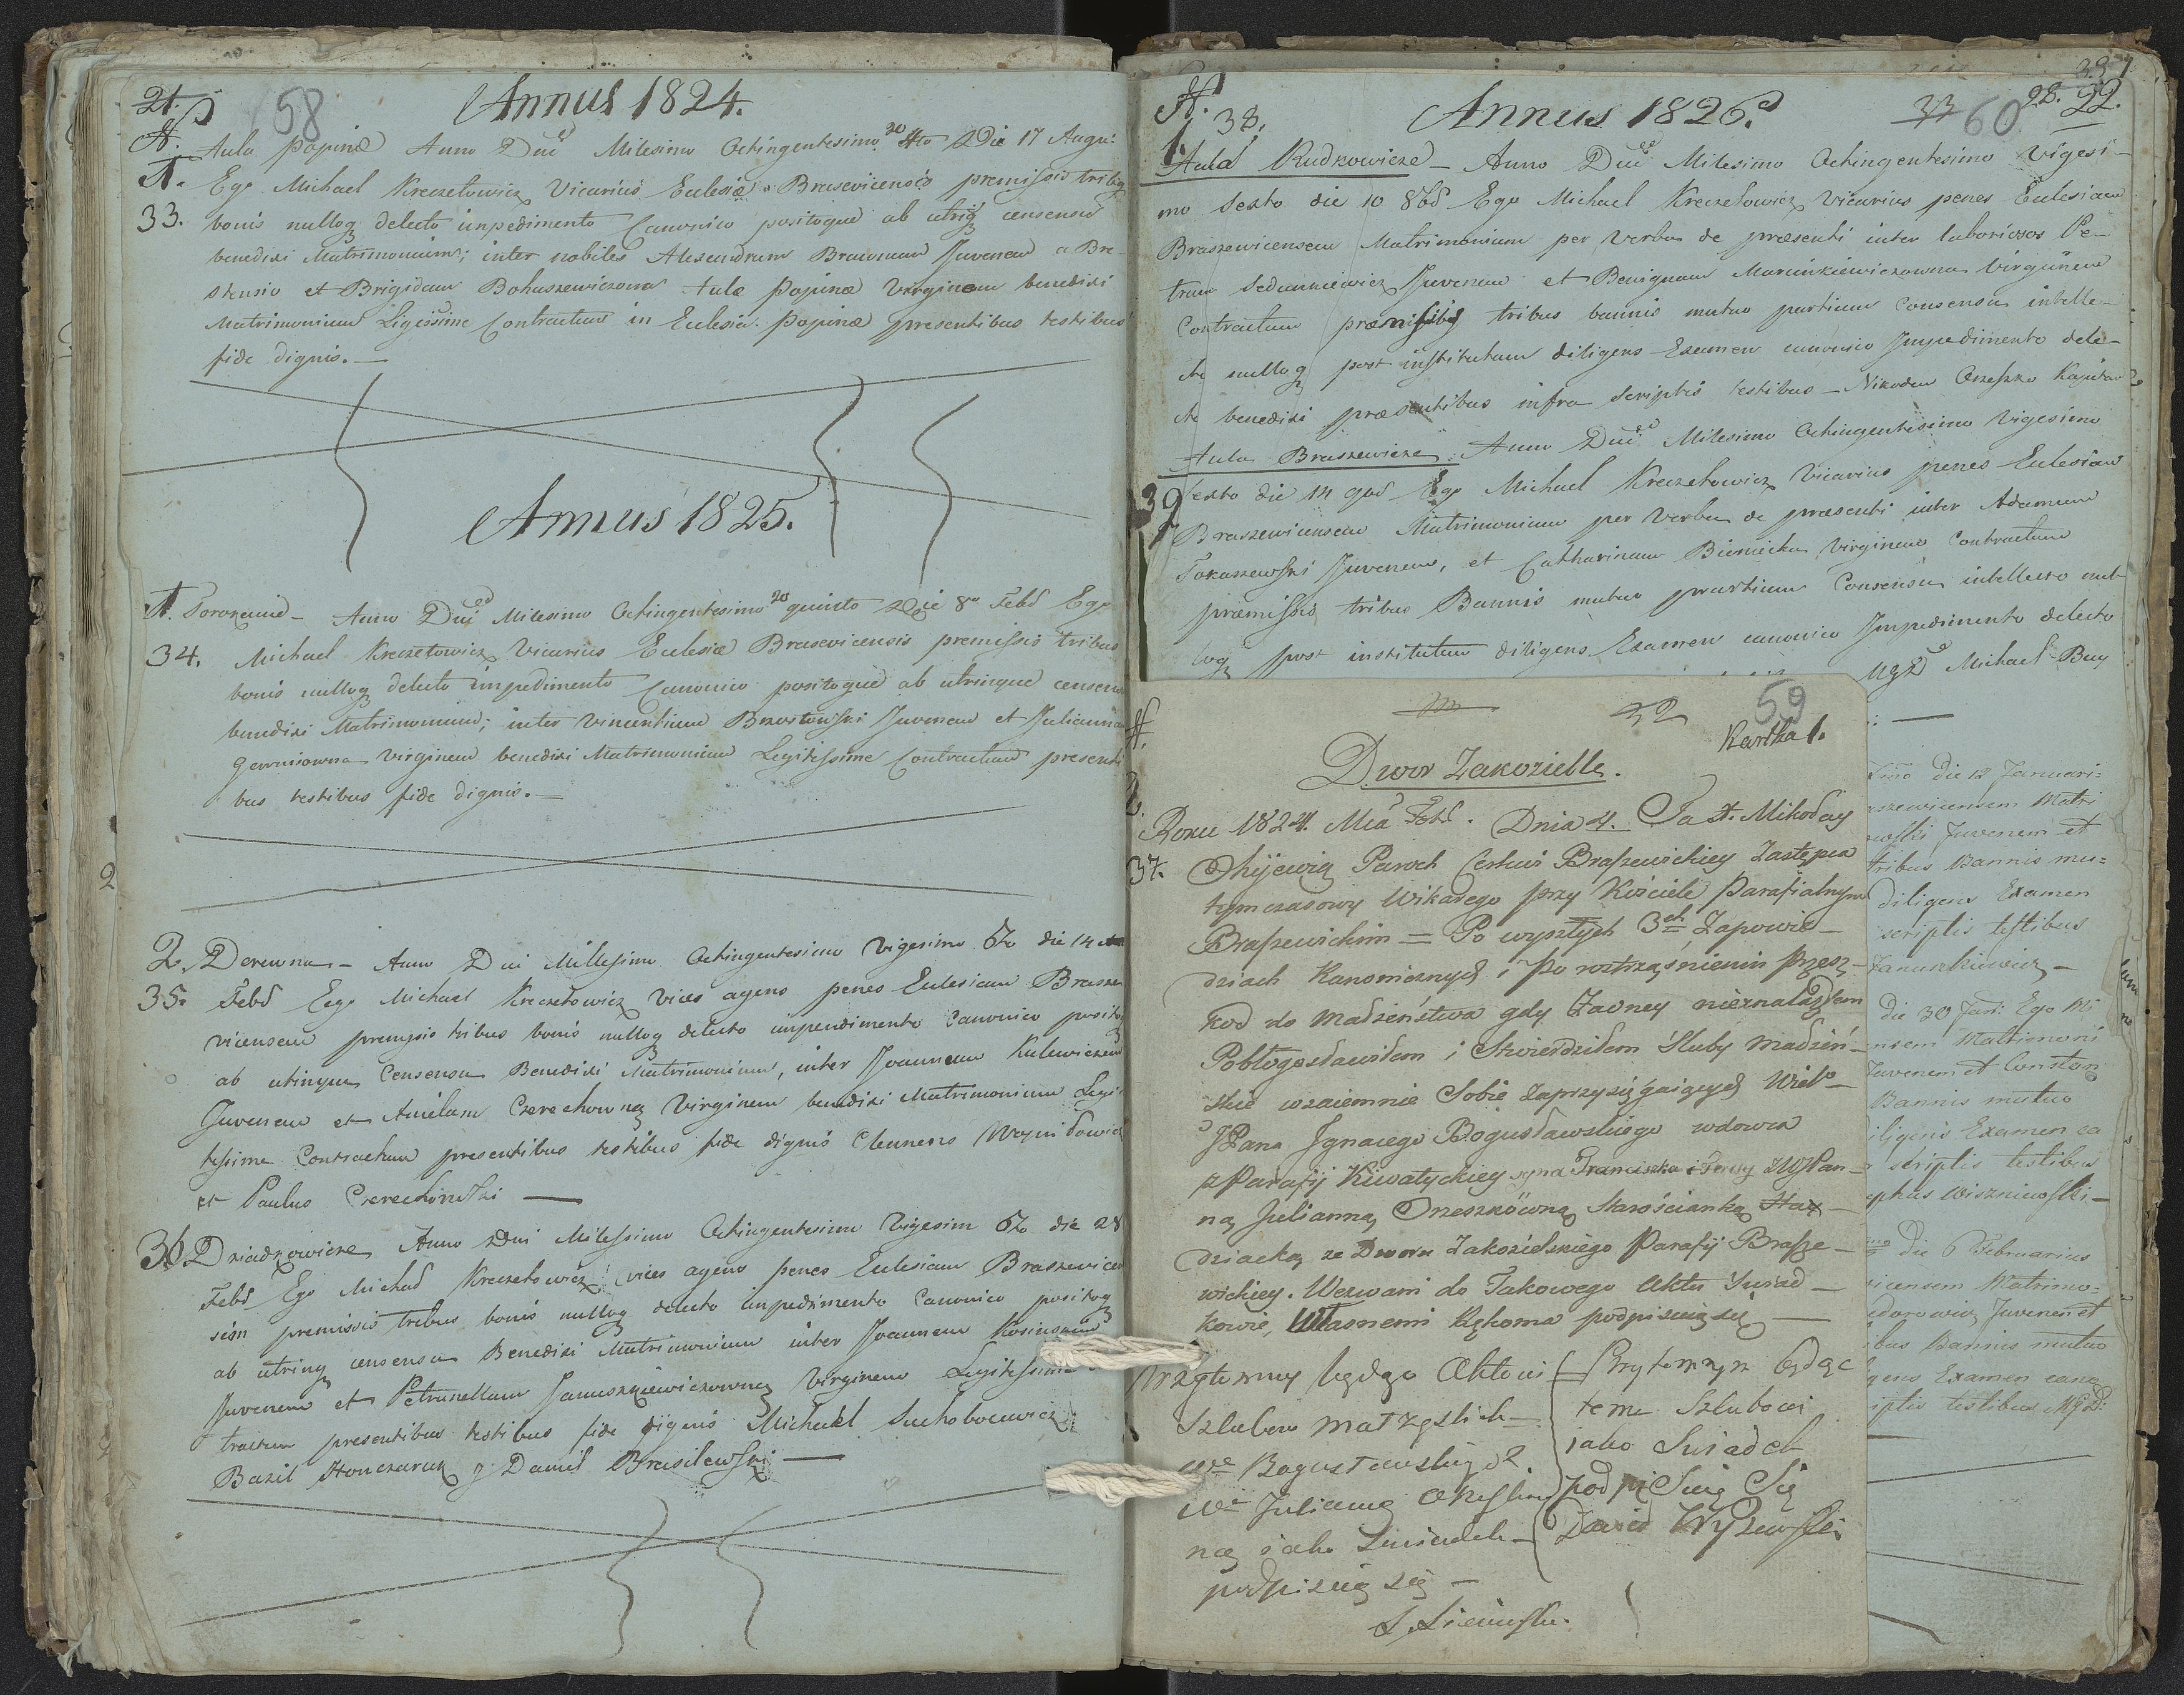 21.
58
Annus 1824.
A. Aula Popinæ Anno Dni Milesimo Octingentesimo 20 4to Die 17 Augu:
1. Ego Michael Kreczetowicz Vicarius Eclesiæ Brasevicensis premissis tribq
33. bonis nulloq delecto impedimento Canonico positoque ab utriq censensu
benedixi Matrimonium; inter nobiles Alexandrum Juvenem a Bre-
stensio et Brigidam Bohuszewiczowna Aulæ Popinæ Virginem benedixi
Matrimonium Ligissime Contractum in Eclesia Popinæ presentibus testibus
fide dignis.—
Annus 1825.
A. Anno Dni Milesimo Octingentesimo 20 quinto Die 8va Febd Ego
34. Michael Kreczetowicz Vicarius Eclesiæ Brasevicensis premissis tribus
bonis nulloq delecto impedimento Canonico positoque ab utrinque censensu
benedixi Matrimonium; inter Vincentium Juvenem et Julianna
virginem benedixi Matrimonium Legitissime Contractum presenti
bus testibus fide dignis.—
2
2. Derewna — Anno Dni Millesimo Octingentesimo Vigesimo 6to die 14
35. Febd Ego Michael Kreczetowicz Vices agens penes Eclesiam Brasze
vicensem premissis tribus bonis nulloq delecto impendimento Canonico positoq
ab utinque Censensu Benedixi Matrimonium, inter Joannem Kulewiczem
Juvenem et Amilam Czerechownaą Virginem benedixi Matrimonium Legi
tissime Contractum presentibus testibus fide dignis Clemens
et Paulus
36. Dziadkowicze Anno Dni Milessimo Octingentesimo Vigesim 6to die 28
Febd Ego Michael Kreczetowicz vices agens penes Eclesiam Braszewicen
sem premissis tribus bonis nulloq delecto impedimento Canonico positoq
ab utrinq censensu Benedixi Matrimonium inter Joannem
Juvenem et Petrunellam Januszkiewiczownaą Virginem Legitissime
tractum presentibus testibus fide dignis Michael Suchobocewicz
Bazil Honczaruk y Daniel
A. 38.
Annus 1826.
33 60 28. 22.
1. Aula Rudkowicze — Anno Dni Milesimo Octingentesimo Vigesi-
mo Sexto die 10 8bd Ego Michael Kreczetowicz Vicarius penes Eclesiam
Braszewicensem Matrimonium per Verba de præsenti inter laboriosos Pe-
trum Juvenem et Benignam Marcinkiewiczowna Virginem
Contractum præmissis tribus bannis mutuo partium Consensu intelle-
cto nulloq post institutum diligens Examen canonico Impedimento dele-
cto benedixi præsentibus infra scriptis testibus — Nikodem Orzeszko
Aula Braszewicze. Anno Dni Milesimo Octingentisimo Vigesimo
39 Sexto die 14 9bd Ego Michael Kreczetowicz Vicarius penes Eclesiam
Braszewicensem Matrimonium per Verba de præsenti inter Adamum
Tokarzewski Juvenem, et Catharinam Virginem Contractum
præmissis tribus Bannis mutuo partium Consensu intellecto nul-
loq post institutum diligens Examen canonico Impedimento delecto
MgD Michael
32
59
Kartka 1.
Dwor Zakozielle.
Roku 1824. Mca Febd. Dnia 4. Ja X. Mikołay
37. Paroch Cerkwi Braszewickiey Zastępca
tymczasowy Wikarego przy Kościele Parafialnym
Braszewickim = Po wyszłych 3ch Zapowie-
dziach Kanonicznych i po roztrząśnieniu przesz-
kod do małżeństwa gdy żadney nieznalazłem
Pobłogosławiłem i Stwierdziłem Śluby małżeń-
skie wzaiemnie Sobie zaprzysięgaiących Wiel°-
JPana Jgnacego Bogusławskiego wdowca
z Parafij Kiwatyckiey syna Franciszka i Teresy z WJPan-
ną Julianną Orzeszkowną Starościanką
dziacką ze Dworu Zakozielskiego Parafij Brasze-
wickiey. Wezwani do Takowego Aktu Swiad-
kowie, Własnemi Rękoma podpisuią się —
Przytomny będąc Aktowi
Szlubow małżeskich —
We Bogusławskiego z
We Julianną Orzeszkow
ną iako Swiadek —
podpisuię się —
Przytomnym będąc
temu Szlubowi
iako Swiadek
podpisuię Się
Dawid Wyszewski
die 12 Januari=
szewicensem Matri
Juvenem et
tribus Bannis mu=
diligens Examen
scriptis testibus
Januszkiewicz —
die 30 Jan: Ego Mi
ensem Matrimoni
Juvenem et Constan
Bannis mutuo
iligens Examen ca
scriptis testibus
die 6 Februarius
vicensem Matrimo=
Juvenem et
ibus Bannis mutuo
gens Examen cano
iptis testibus MgD: